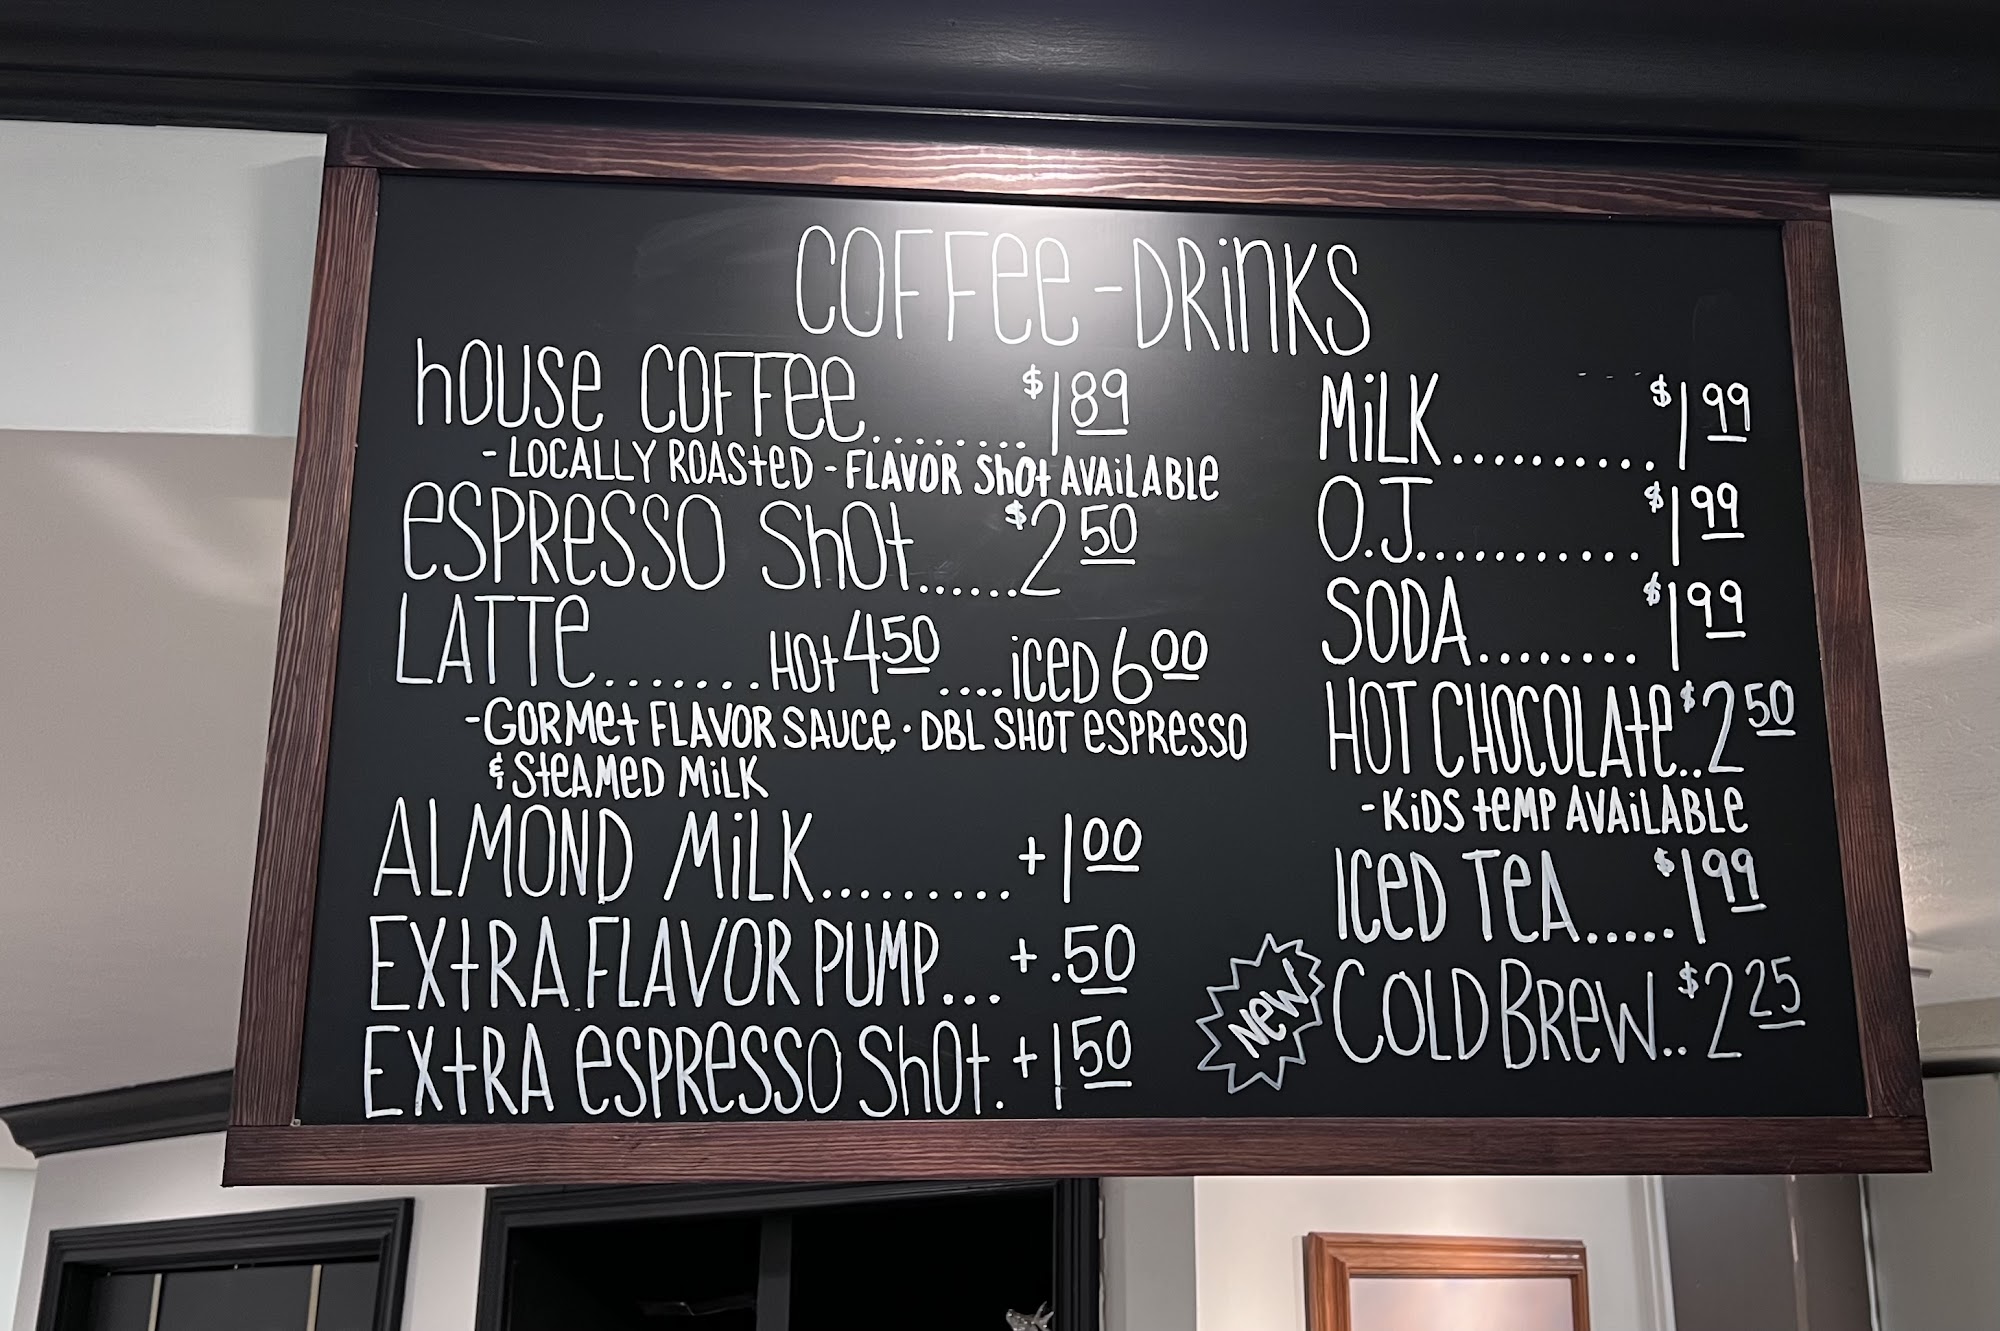 COFFee-DRinKS
hOUSe COFFee........ $1.89
- LOCALLY ROASteD - FLAVOR ShOt AVAiLABLe
eSPReSSO ShOt...... $2.50
LATTe....... HOt 4.50 .... iCeD 6.00
- GORMet FLAVOR SAUCe · DBL SHOT eSPReSSO
& SteAMeD MiLK
ALMOND MiLK......... + 1.00
EXtRA FLAVOR PUMP... + .50
EXtRA eSPReSSO ShOt. + 1.50
MiLK.......... $1.99
O.J........... $1.99
SODA........ $1.99
HOT CHOCOLAte.. $2.50
- KiDS teMP AVAiLABLe
ICeD TeA..... $1.99
NeW COLD BReW.. $2.25